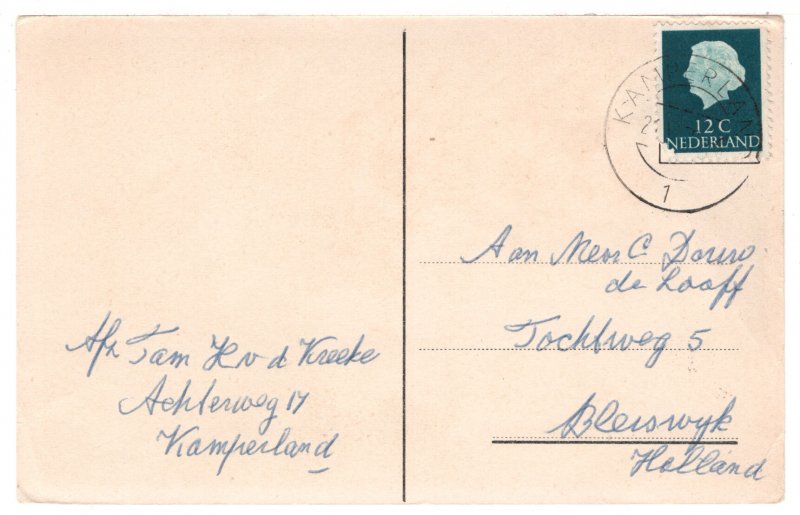 KAMPERLAND
2
1
12 C
NEDERLAND
Aan Mevr C
de Looff
Tochtweg 5
Bleiswyk
Holland
Afz Fam H v d Kreeke
Achterweg 17
Kamperland